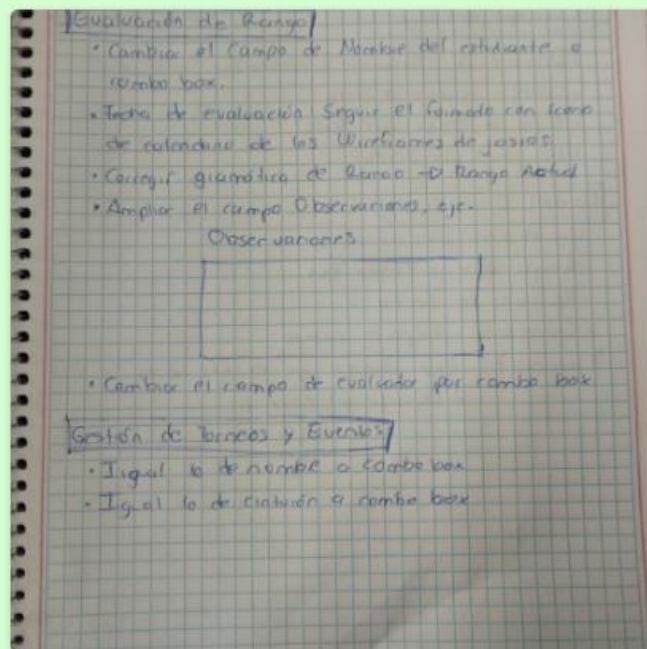 Evaluación de Rango
• Cambiar el Campo de Nombre del estudiante a
combo box.
• Fecha de evaluación Seguir el formato con icono
de calendario de los Wireframes de
• Corregir gramática de → Rango Actual
• Ampliar el campo Observaciones, eje.
Observaciones
• Cambiar el campo de evaluador por combo box
Gestión de Torneos y Eventos
• Igual lo de nombre a combo box
• Igual lo de cinturón a combo box